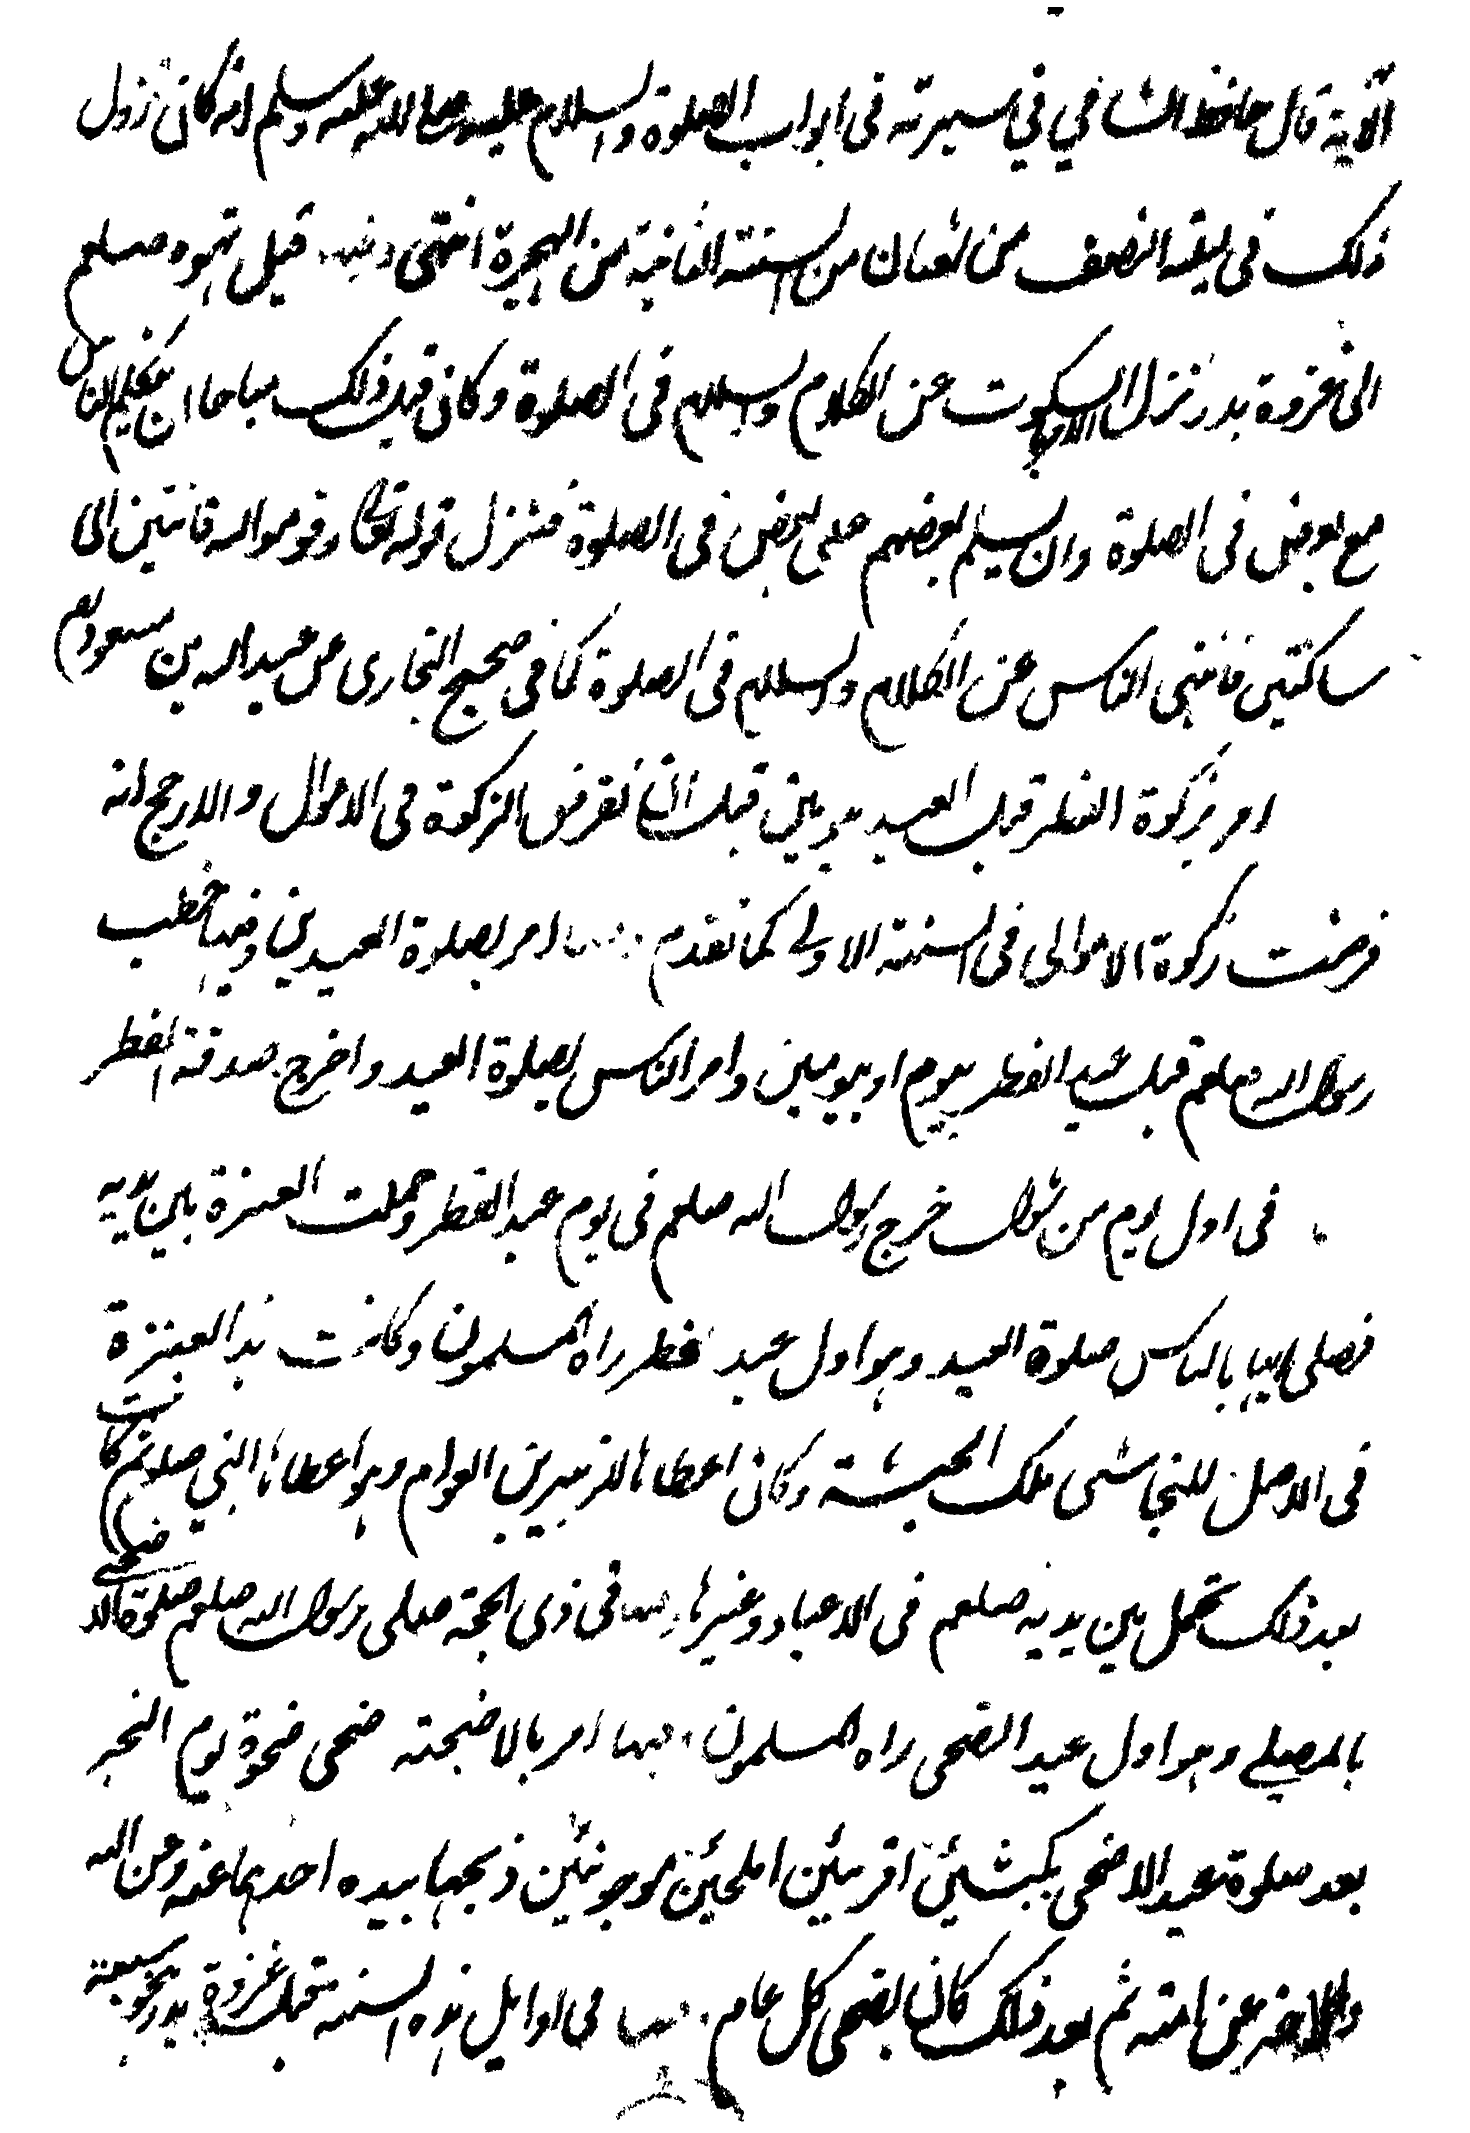 الآية قال حافظ الشافي في سيرته في ابواب الصلوة والسلام عليه صلى الله عليه وسلم انه كان نزول
ذلك في ليلة النصف من شعبان من السنة الثانية من الهجرة انتهى وفيها قبيل توجهه صلعم
الى غزوة بدر نزل الامر بالسكوت عن الكلام والسلام في الصلوة وكان قبل ذلك مباحا ان يتكلم الناس
مع بعض في الصلوة وان يسلم بعضهم على بعض في الصلوة فنزل قوله تعالى وقوموا لله قانتين اى
ساكتين فانتهى الناس عن الكلام والسلام في الصلوة كما في صحيح البخارى عن عبدالله بن مسعود
امر بزكوة الفطر قبل العيد بيومين قبل ان تفرض الزكوة في الاموال والارجح انه
فرضت زكوة الاموال في السنة الاولى كما تقدم وفيها امر بصلوة العيدين وفيها خطب
رسول الله صلعم قبل عيد الفطر بيوم او بيومين وامر الناس بصلوة العيد واخرج صدقة الفطر
في اول يوم من شوال خرج رسول الله صلعم في يوم عيد الفطر وحملت العنزة بين يديه
فصلى اليها بالناس صلوة العيد وهو اول عيد فطر راه المسلمون وكانت هذه العنزة
في الاصل للنجاشى ملك الحبشة وكان اعطاها للزبير بن العوام وهو اعطاها النبي صلوتم كانت
بعد ذلك تحمل بين يديه صلعم في الاعياد وغيرها وفيها في ذى الحجة صلى رسول الله صلعم صلوة الاضحى
بالمصلى وهو اول عيد الضحى راه المسلمون وفيها امر بالاضحية ضحى ضحوة يوم النحر
بعد صلوة عيد الاضحى بكبشين اقرنين املحين موجوئين ذبحهما بيده احدهما عنه وعن اله
والاخر عن امته ثم بعد ذلك كان يضحى كل عام وفيها في اوايل هذه السنة قبل غزوة بدر بنحو سبعة